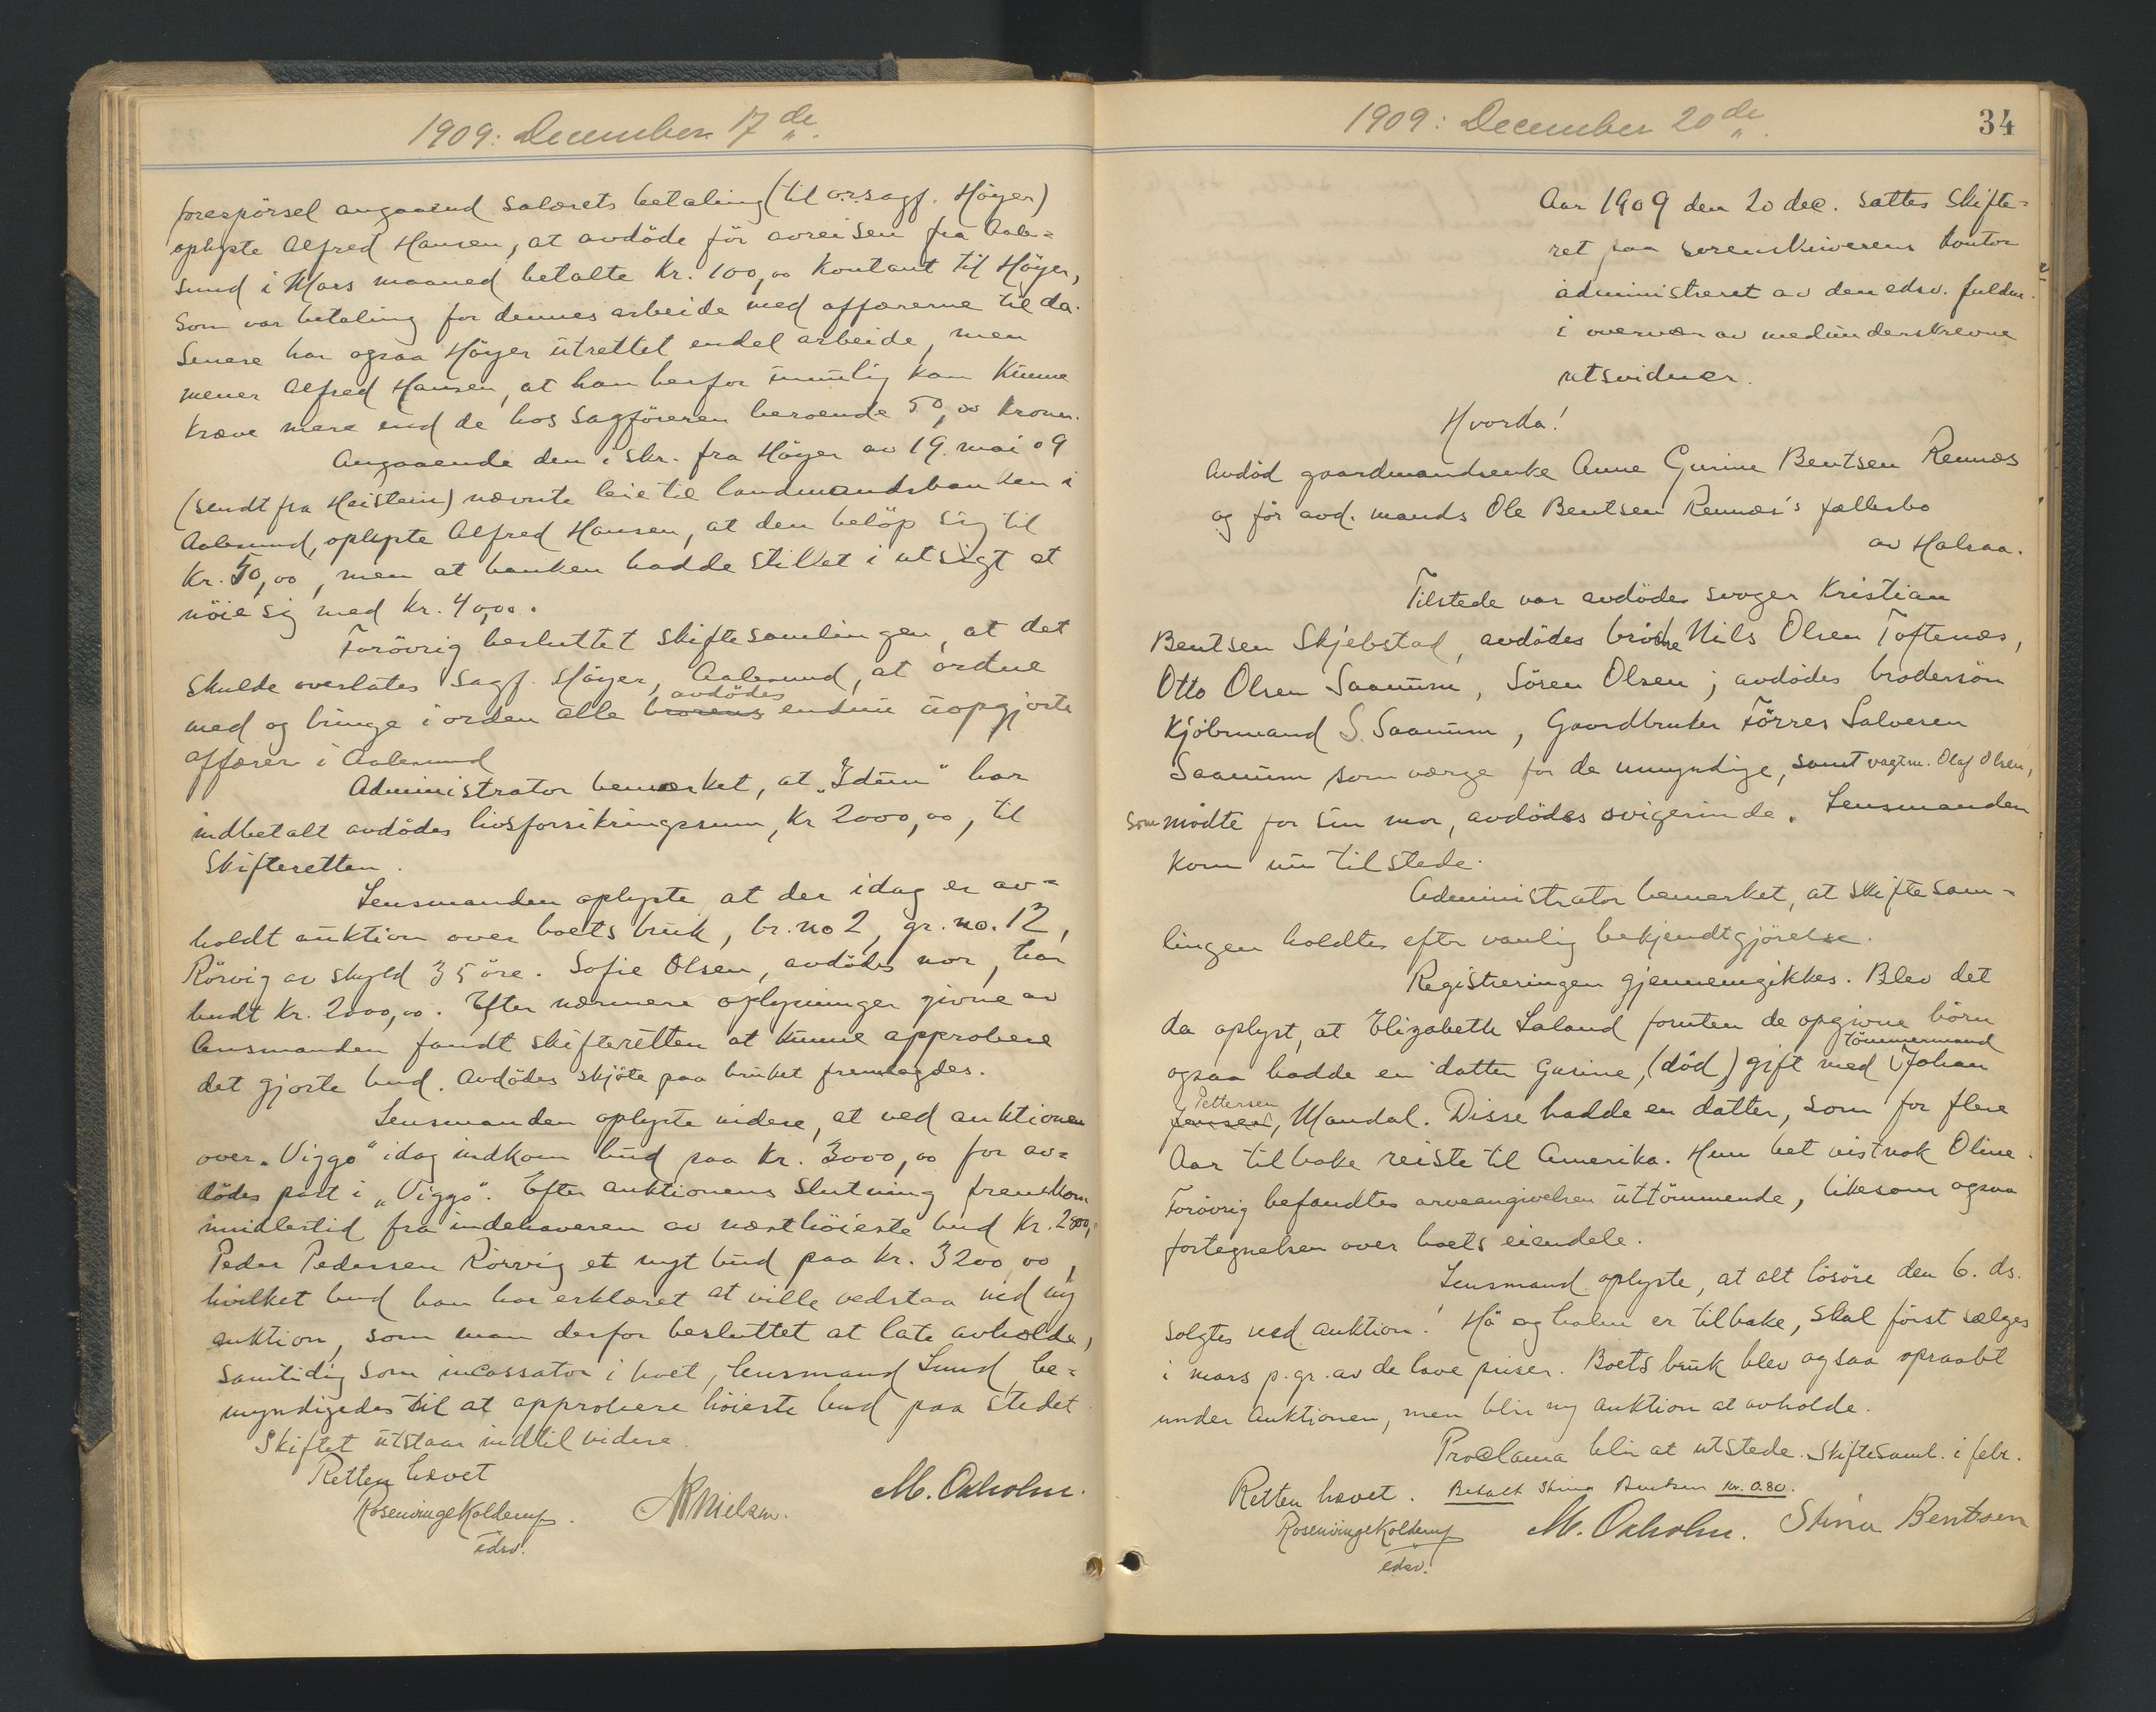 1909: December 17de
forespörsel angaaend salærets betaling (til o.r.sagf. Höyer)
oplyste Alfred Hansen, at avdöde för avreisen fra Aale=
sund i Mars maaned betalte Kr. 100,00 kontant til Höyer,
som var betaling for dennes arbeide med affærerne til da.
Senere har ogsaa Höyer utrettet endel arbeide, men
mener Alfred Hansen, at han herfor umulig kan kunne
kræve mere end de hos sagföreren beroende 50,00 kroner.
Angaaende den i skr. fra Höyer av 19. mai 09
(sendt fra Heistein) nævnte leie til landmandsbanken i
Aalesund, oplyste Alfred Hansen, at den belöp sig til
Kr. 50,00, men at banken hadde stillet i utsigt at
nöie sig med kr. 40,00.
Forövrig besluttet skiftesamlingen, at det
skulde overlates Sagf. Höyer, Aalesund, at ordne
med og bringe i orden alle brorens avdödes endnu uopgjorte
affærer i Aalesund
Administrator bemærket, at "Idun" har
indbetalt avdödes livsforsikringssum, Kr 2000,00, til
Skifteretten.
Lensmanden oplyste at der idag er av=
holdt auktion over boets bruk, br. no 2, gr. no. 12,
Rörvig av skyld 35 öre. Sofie Olsen, avdödes mor, har
budt Kr. 2000,00. Efter nærmere oplysninger givne av
lensmanden fandt skifteretten at kunne approbere
det gjorte bud. Avdödes skjöte paa bruket fremlagdes.
Lensmanden oplyste videre, at ved auktionen
over "Viggo" idag indkom bud paa Kr. 3000,00 for av=
dödes part i "Viggo". Efter auktionens slutning fremkom
imidlertid fra indehaveren av næsthöieste bud Kr. 2900,
Peder Pedersen Rörvig et nyt bud paa kr. 3200,00,
hvilket bud han har erklæret at ville vedstaa ved ny
auktion, som man derfor besluttet at late avholde,
samtidig som incassator i boet, lensmand Lund, be=
myndigedes til at approbere höieste bud paa stedet.
Skiftet utstaar indtil videre.
Retten hævet
Rosenvinge Kolderup. edsv. Nielsen. M. Oxholm.
1909: December 20de 34
Aar 1909 den 20 dec. sattes Skifte=
ret paa sorenskriverens kontor
administreret av den edsv. fuldm.
i overvær av medunderskrevne
retsvidner.
Hvorda!
Avdöd gaardmandsenke Anne Gurine Bentsen Rennæs
og för avd. mands Ole Bentsen Rennæs's fællesbo
av Halsaa.
Tilstede var avdödes svoger Kristian
Bentsen Skjebstad, avdödes brödre Nils Olsen Toftenæs,
Otto Olsen Saanum, Sören Olsen; avdödes brodersön
Kjöbmand S. Saanum, Gaardbruker Törres Salvesen
Saanum som værge for de umyndige, samt vagtm. Olaf Olsen,
som mödte for sin mor, avdödes svigerinde. Lensmanden
kom nu tilstede.
Administrator bemerket, at skiftesam=
lingen holdtes efter vanlig bekjendtgjörelse.
Registreringen gjennemgikkes. Blev det
da oplyst, at Elizabeth Saland foruten de opgivne börn
ogsaa hadde en datter Gurine, (död) gift med tömmermand Johan
Jensen Pettersen, Mandal. Disse hadde en datter, som for flere
Aar tilbake reiste til Amerika. Hun het vistnok Oline.
Forövrig befandtes arveangivelsen uttömmende, likesom ogsaa
fortegnelsen over boets eiendele.
Lensmand. oplyste, at alt lösöre den 6. ds.
solgtes ved auktion. Hö og halm er tilbake, skal först sælges
i mars p. gr. av de lave priser. Boets bruk blev ogsaa opraabt
under Auktionen, men blir ny auktion at avholde.
Proclama blir at utstede. Skiftesaml. i febr.
Retten hævet. Betalt Stina Bentsen kr. 0.80.
Rosenvinge Kolderup edsv. M. Oxholm. Stina Bentsen